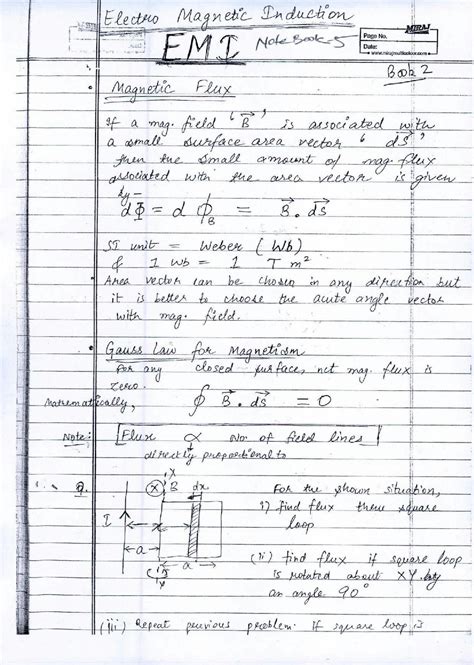 Electro Magnetic Induction
EMI NoteBook-5
MIRAJ
Page No.
Date:
Book 2
• Magnetic Flux
If a mag. field ‘B⃗’ is associated with
a small surface area vector ‘ds⃗’
then the small amount of mag. flux
associated with the area vector is given
by -
dΦ = dϕ_B = B⃗ . ds⃗
SI unit = Weber (Wb)
& 1 Wb = 1 T m²
• Area vector can be chosen in any direction but
it is better to choose the acute angle vector
with mag. field.
• Gauss Law for Magnetism
For any closed surface, net mag. flux is
zero.
Mathematically, ∮ B⃗ . ds⃗ = 0
Note: Flux ∝ No. of field lines
directly proportional to
Q. X
B dx For the shown situation,
i) find flux thru square
I x loop
a a (ii) find flux if square loop
Y is rotated about XY by
an angle 90°
(iii) Repeat previous problem. If square loop is